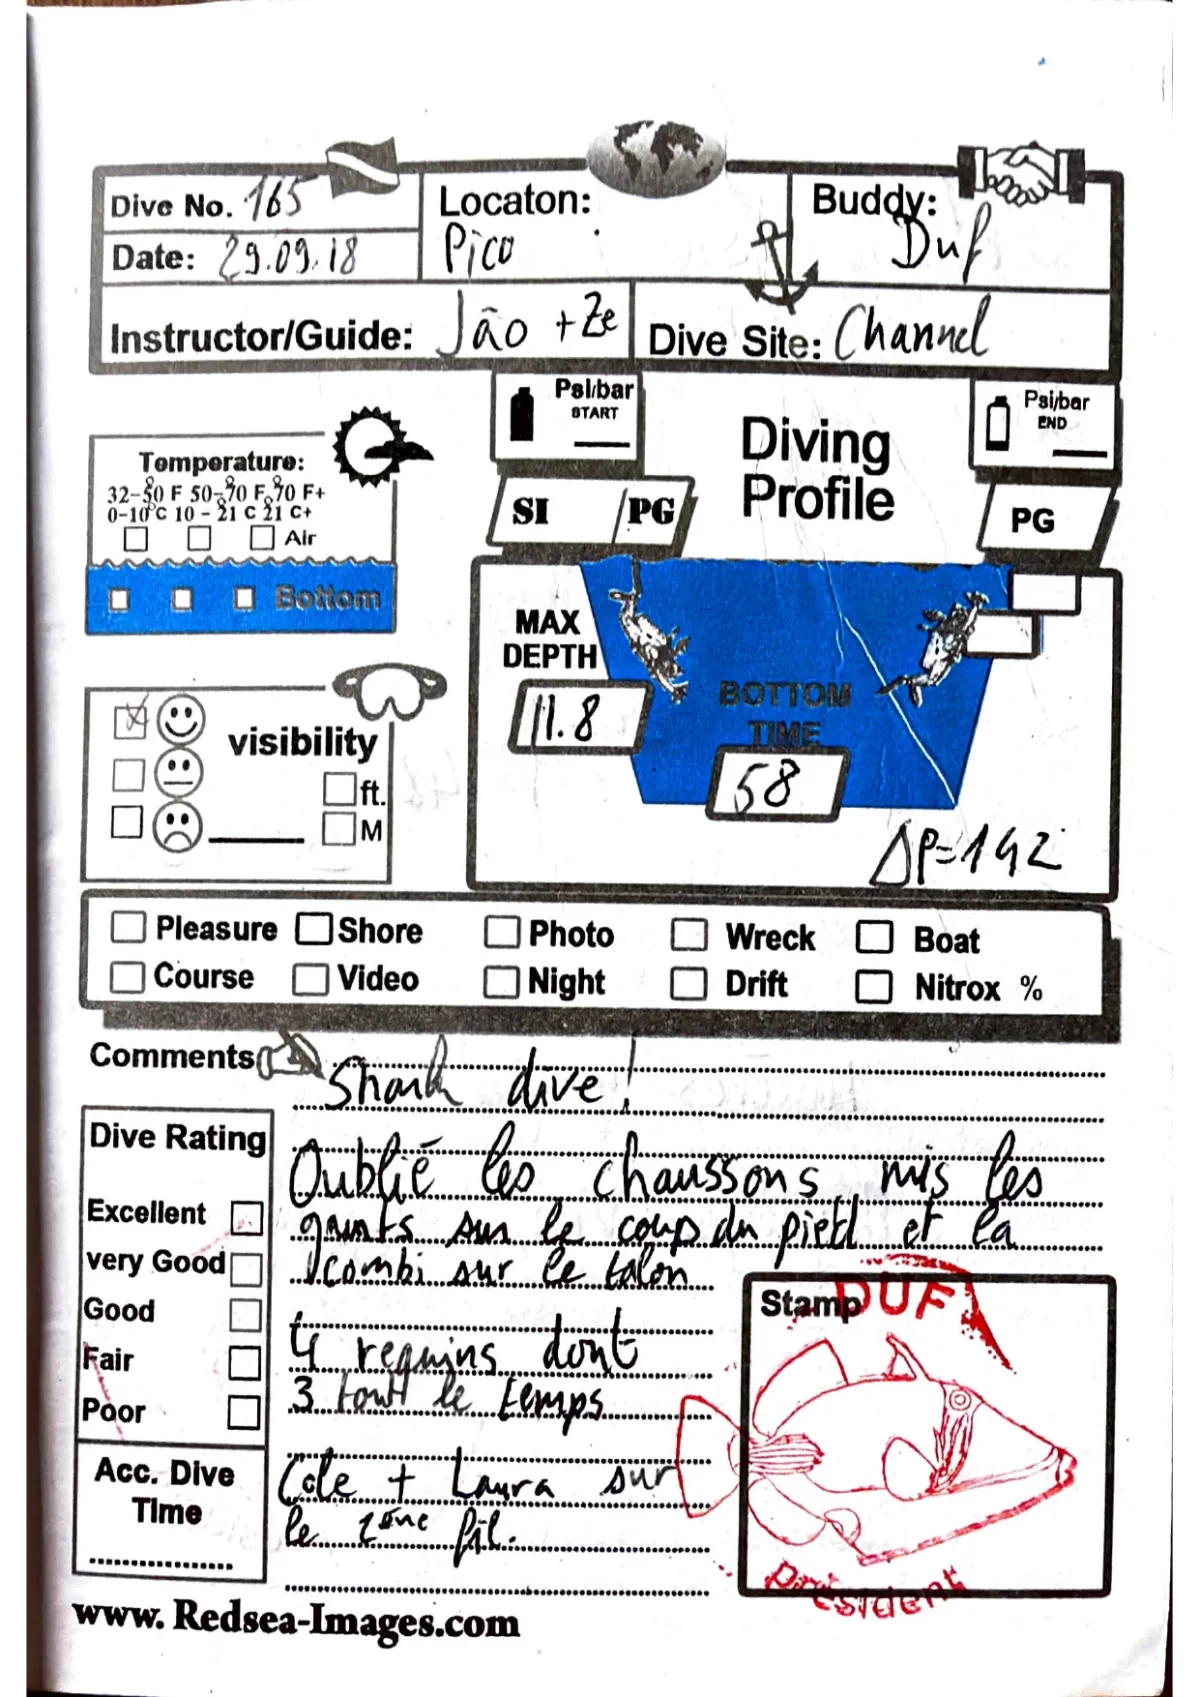 Dive No. 165
Date: 29.09.18
Locaton:
Pico
Buddy:
Duf
Instructor/Guide: Jão + Ze
Dive Site: Channel
Psi/bar
START
Psi/bar
END
Diving
Profile
SI PG
PG
Temperature:
32-50 F 50-70 F 70 F+
0-10°C 10 - 21 C 21 C+
Air
Bottom
MAX
DEPTH
11.8
BOTTOM
TIME
58
ΔP=142
visibility
ft.
M
Pleasure Shore Photo Wreck Boat
Course Video Night Drift Nitrox %
Comments Shark dive!
Oublié les chaussons, mis les
gants sur le coup du pied et la
combi sur le talon
4 requins dont
3 tout le temps
Cole + Laura sur
le 2ème fil.
Dive Rating
Excellent
very Good
Good
Fair
Poor
Acc. Dive
Time
Stamp
DUF
Président
www. Redsea-Images.com